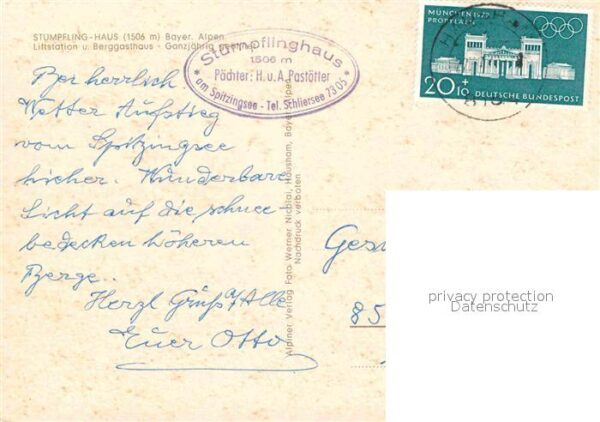 STÜMPFLING-HAUS (1506 m) Bayer. Alpen
Liftstation u. Berggasthaus - Ganzjährig
Stümpflinghaus
1506 m
Pächter: H. u. A. Pastötter
* am Spitzingsee - Tel. Schliersee 7305 *
MÜNCHEN 1972
PROPYLÄEN
20+10 DEUTSCHE BUNDESPOST
Bei herrlich.
Wetter Aufstieg
vom Spitzingsee
hierher. Wunderbare
Sicht auf die schnee-
bedecken höheren
Berge..
Herzl Grüße/Alle
Euer Otto
Alpiner Verlag Foto Werner Nichtal, Hausham, Bayer. Alpen
Nachdruck verboten
85
privacy protection
Datenschutz